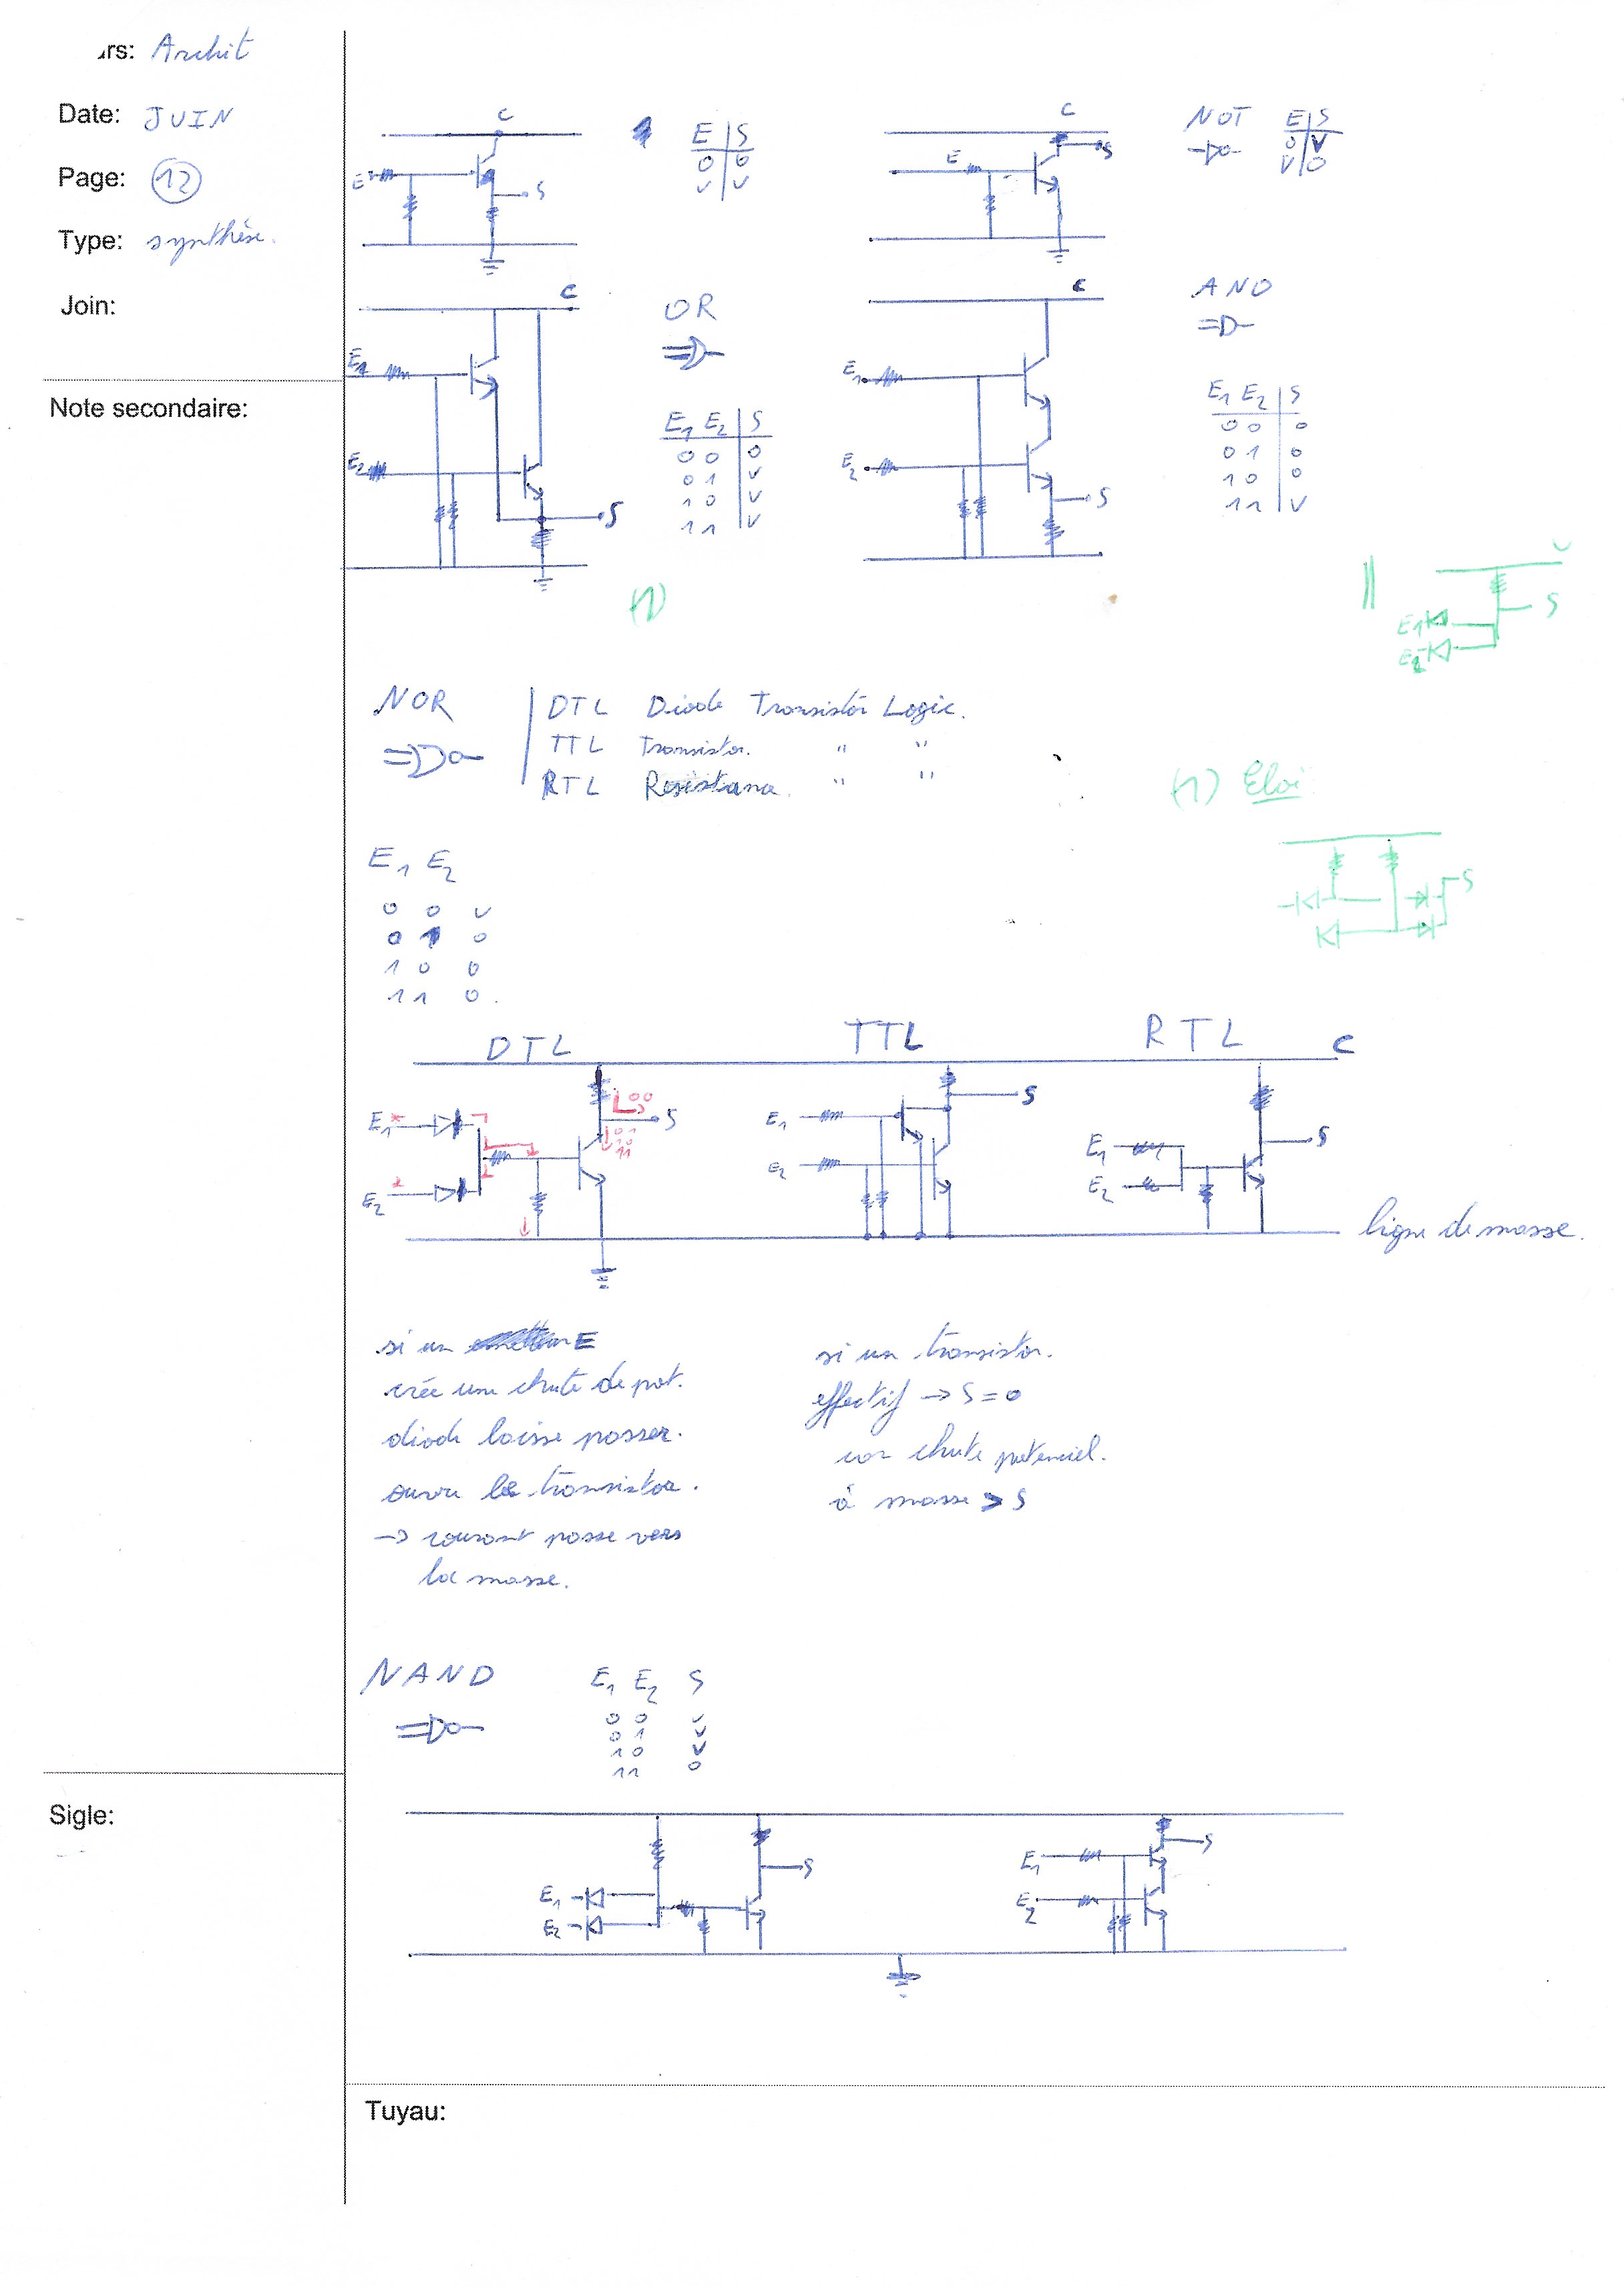 rs: Archit
Date: JUIN
Page: 12
Type: synthèse.
Join:
Note secondaire:
Sigle:
C
E
S
E S
0 0
V V
C
E
S
NOT
E S
0 V
V 0
C
E1
E2
S
OR
E1 E2 S
0 0 0
0 1 V
1 0 V
1 1 V
C
E1
E2
S
AND
E1 E2 S
0 0 0
0 1 0
1 0 0
1 1 V
(1)
S
E1
E2
NOR
DTL Diode Transistor Logic.
TTL Transistor. " "
RTL " "
(1) Eloi
S
E1 E2
0 0 V
0 1 0
1 0 0
1 1 0.
DTL TTL RTL C
E1
E2
00
01
10
11
S
E1
E2
S
E1
E2
S
ligne de masse.
si un E
crée une chute de pot.
diode laisse passer.
ouvre le transistor.
→ courant passe vers
la masse.
si un transistor.
effectif → S=0
car chute potenciel.
à masse > S
NAND
E1 E2 S
0 0 V
0 1 V
1 0 V
1 1 0
E1
E2
S
E1
E2
S
Tuyau: